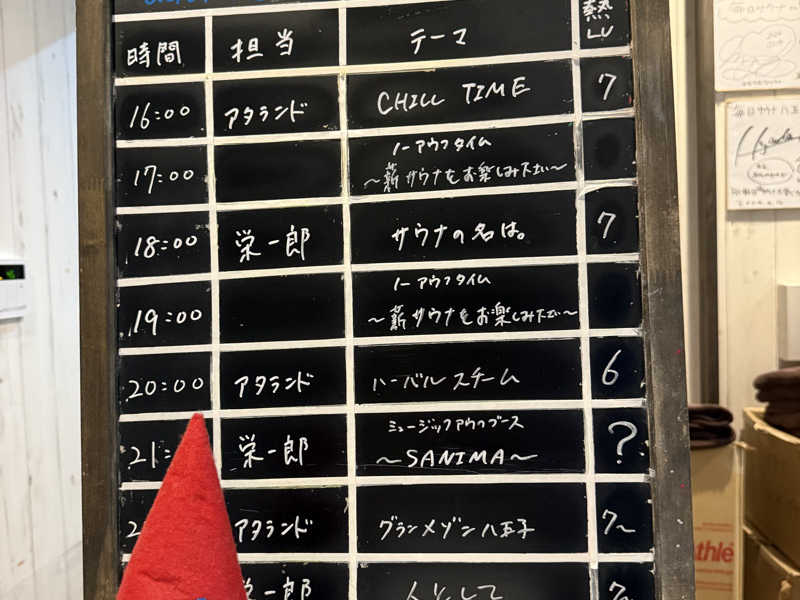 時間 担当 テーマ 熱LV
16:00 アタランド CHILL TIME 7
17:00 ノーアウフタイム
～薪サウナをお楽しみ下さい～
18:00 栄一郎 サウナの名は。 7
19:00 ノーアウフタイム
～薪サウナをお楽しみ下さい～
20:00 アタランド ハーバルスチーム 6
21: 栄一郎 ミュージックアウフブース ?
～SANIMA～
2 アタランド グランメゾン八王子 7～
栄一郎 人として 7～
毎日サウナ
毎日サウナ 八王子
thlé